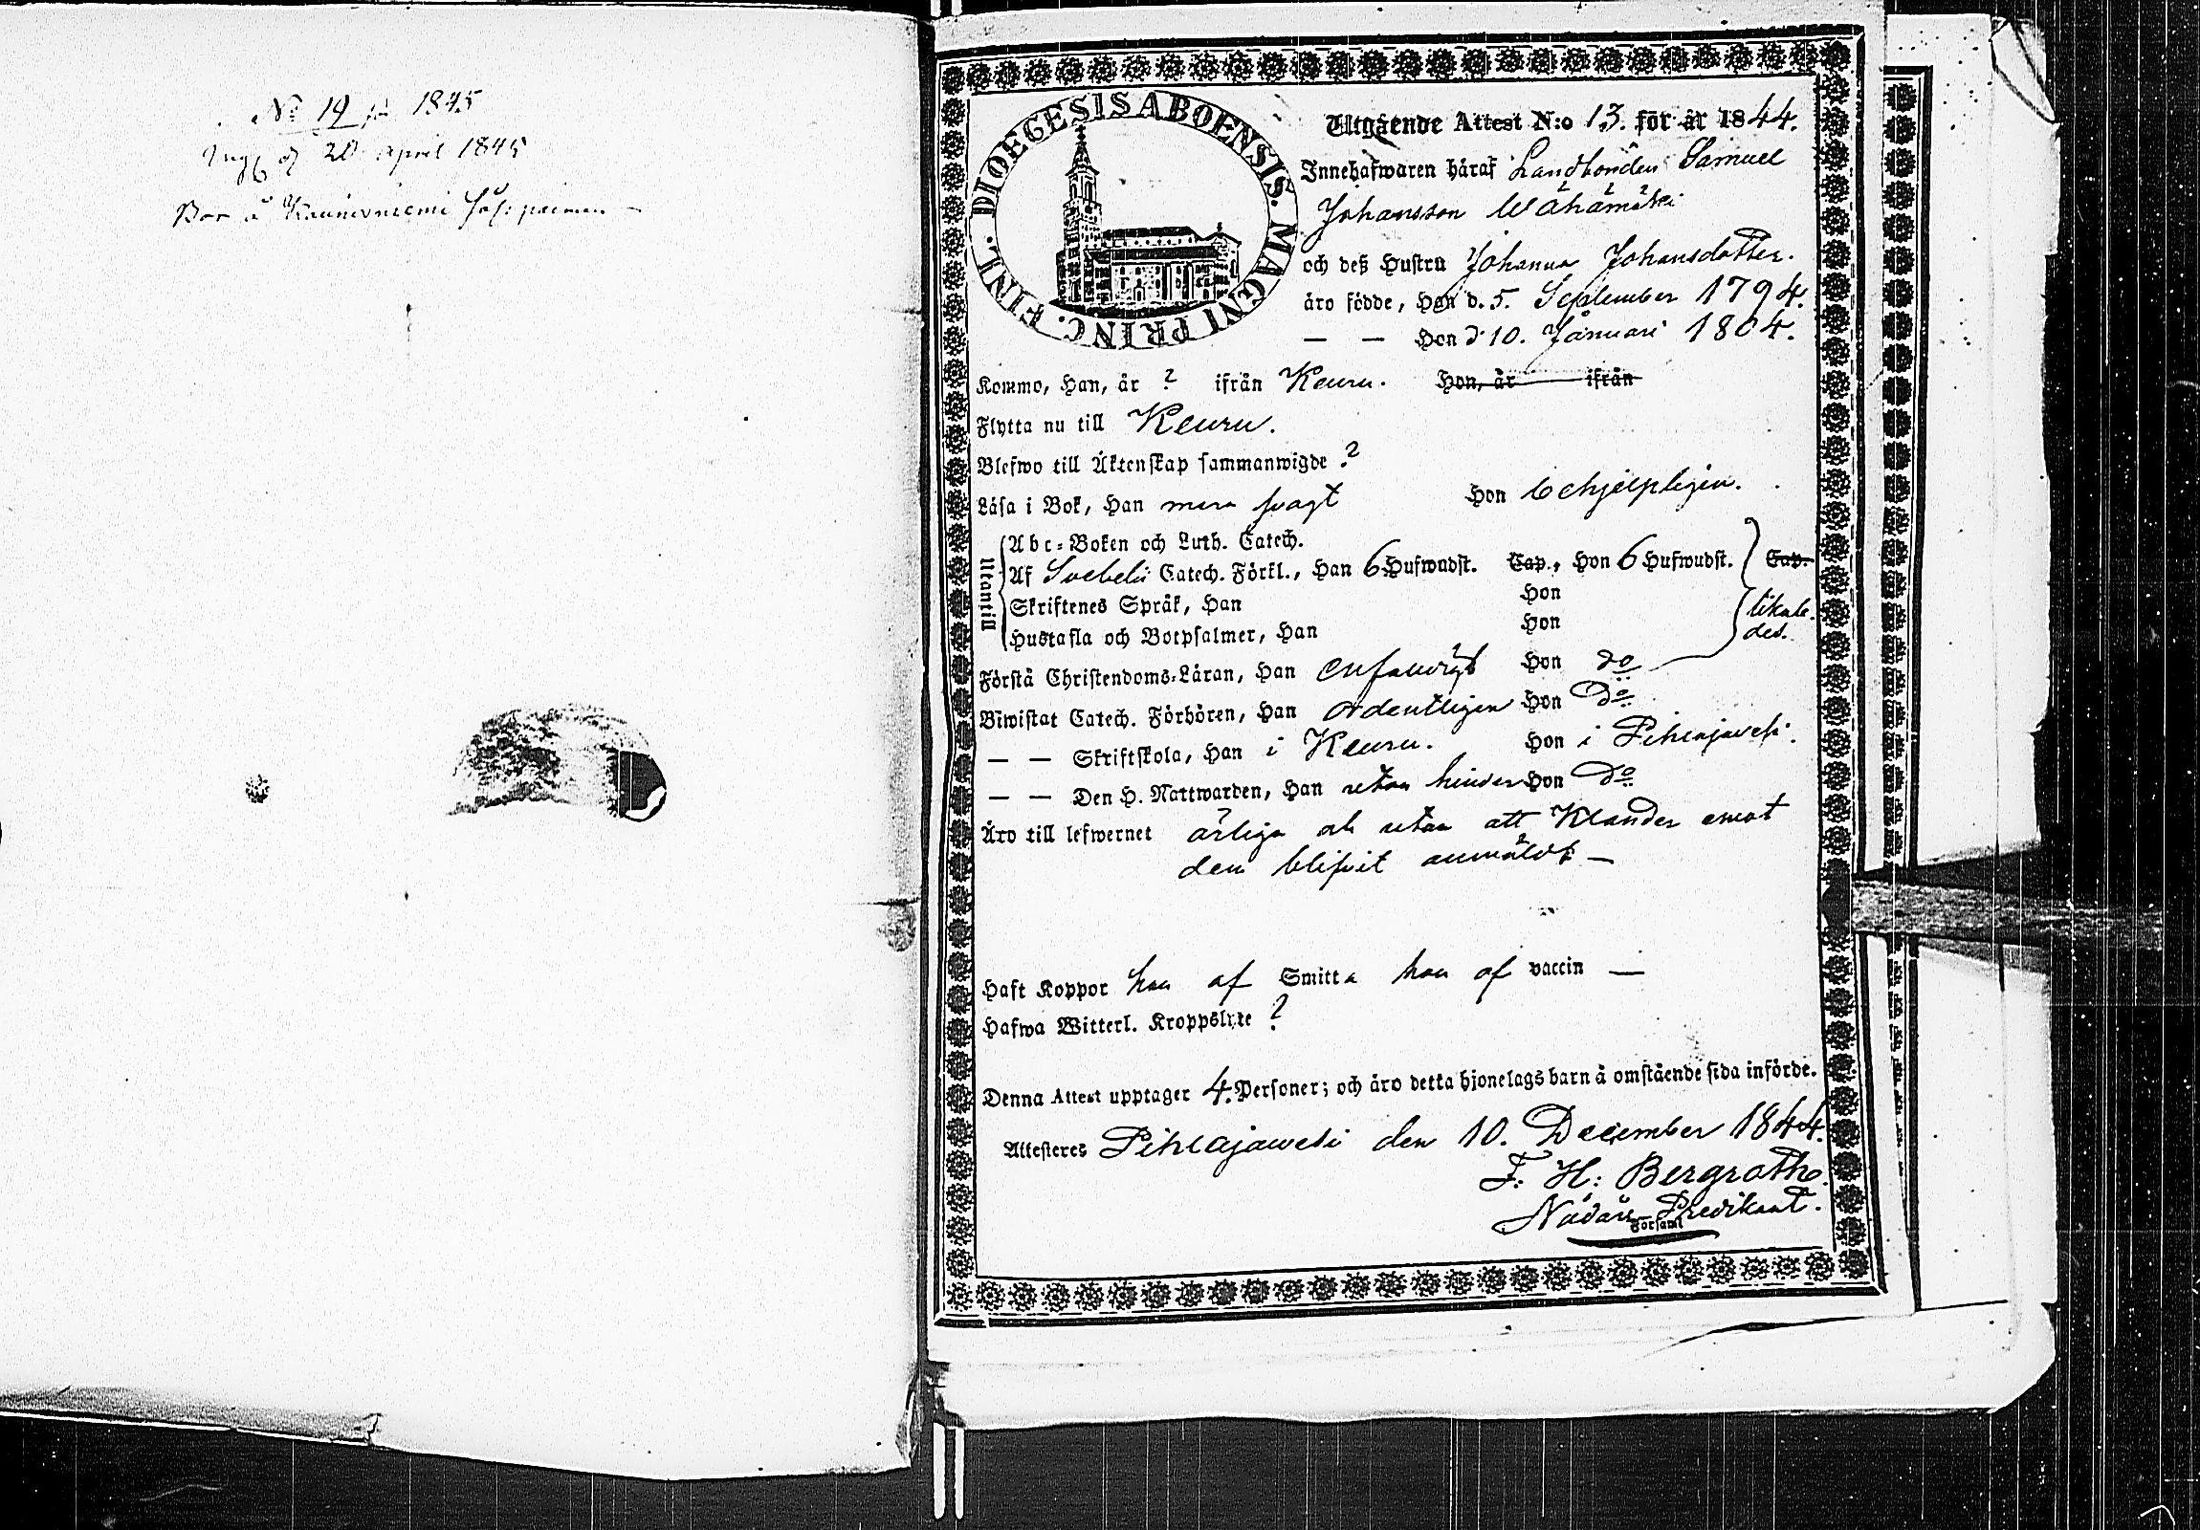 No 19 för 1845
Ing. d 20 April 1845
Bor å
DIOECESIS ABOENSIS. MAGNI PRINC. FINL.
Utgående Attest N:o 13. för år 1844.
Innehafwaren häraf Landbonden Samuel
Johansson Wähämäki
och deß Hustru Johanna Johansdotter.
äro födde, Han d. 5. September 1794.
— — Hon d 10. Januari 1804.
Komme, Han, år ? ifrån Keuru. Hon, år ifrån
Flytta nu till Keuru.
Blefwo till Äktenskap sammanwigde ?
Läsa i Bok, Han mera svagt Hon behjelpligen.
Utantill
Abc-Boken och Luth. Catech.
Af Svebelii Catech. Förkl., Han 6 Hufwudst. Cap., Hon 6 Hufwudst. Cap.
Skriftenes Språk, Han Hon
Hustafla och Botpsalmer, Han Hon
likale-
des.
Förstå Christendoms-Läran, Han enfaldigt Hon do
Biwistat Catech. Förhören, Han ordentligen Hon Do
— — Skriftskola, Han i Keuru. Hon i Pihlajavesi.
— — Den H. Nattwarden, Han utan hinder Hon Do
Äro till lefwernet ärliga och utan att Klander emot
den blifvit anmäldt —
Haft Koppor han af Smitta hon af vaccin —
Hafwa Witterl. Kroppslyte ?
Denna Attest upptager 4. Personer; och äro detta hjonelags barn å omstående sida införde.
Attesteres Pihlajawesi den 10. December 1844.
F. H: Bergroth
Nådårs Predikant.
Församl